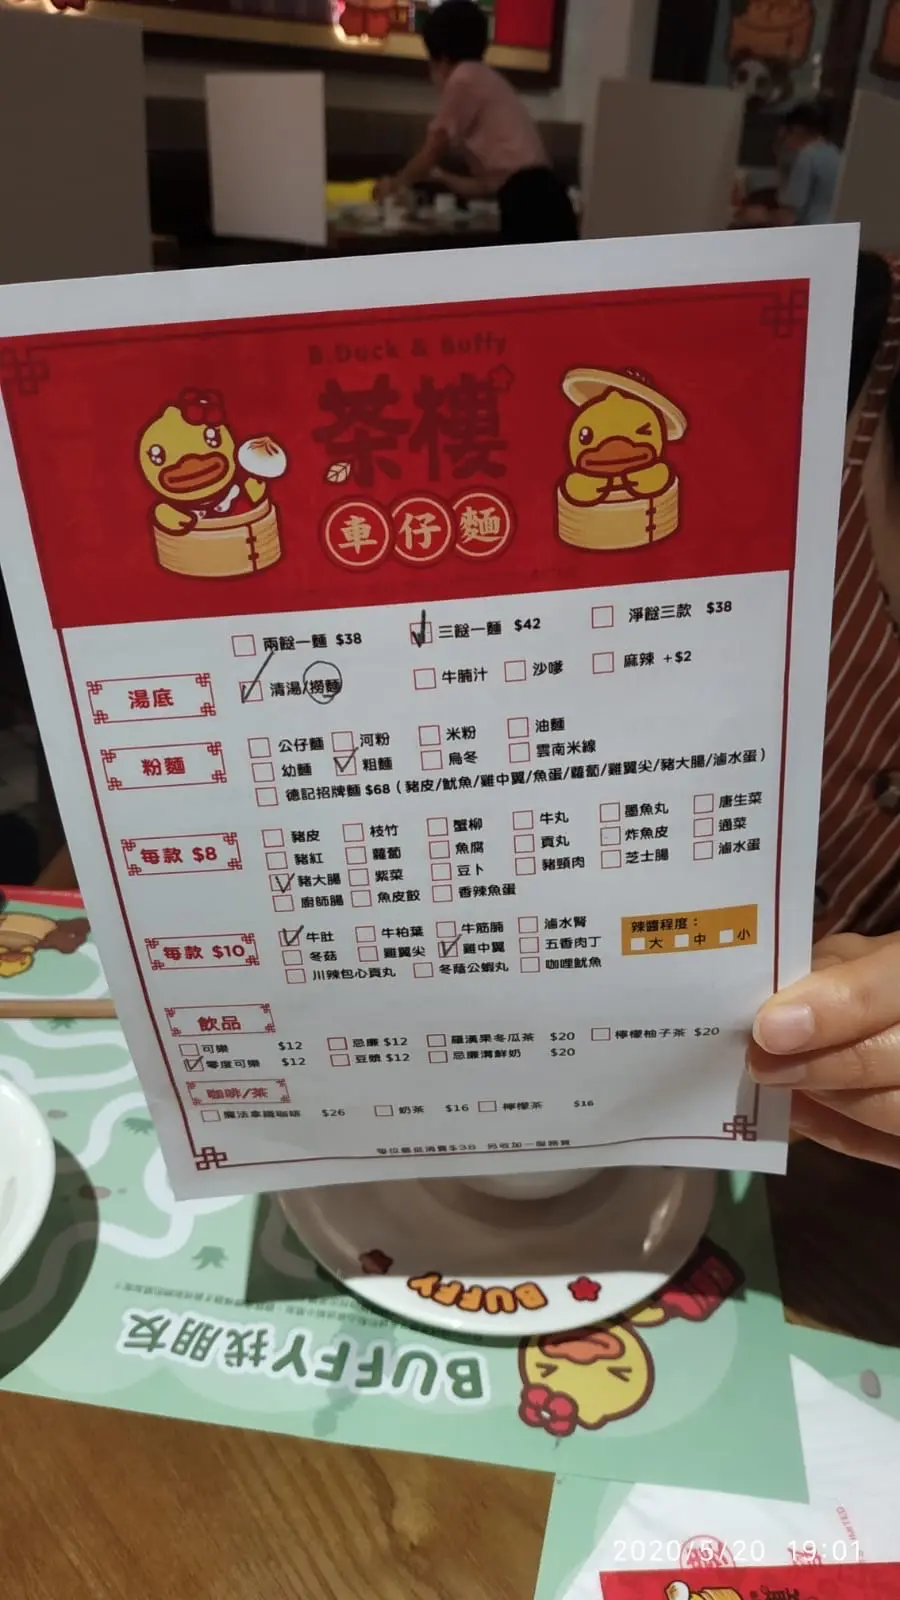 B.Duck & Buffy
茶樓
車仔麵
兩餸一麵 $38 三餸一麵 $42 淨餸三款 $38
湯底 清湯/撈麵 牛腩汁 沙嗲 麻辣 +$2
粉麵 公仔麵 河粉 米粉 油麵
幼麵 粗麵 烏冬 雲南米線
德記招牌麵 $68 (豬皮/魷魚/雞中翼/魚蛋/蘿蔔/雞翼尖/豬大腸/滷水蛋)
每款 $8 豬皮 枝竹 蟹柳 牛丸 墨魚丸 唐生菜
豬紅 蘿蔔 魚腐 貢丸 炸魚皮 通菜
豬大腸 紫菜 豆卜 豬頸肉 芝士腸 滷水蛋
廚師腸 魚皮餃 香辣魚蛋
每款 $10 牛肚 牛柏葉 牛筋腩 滷水腎
冬菇 雞翼尖 雞中翼 五香肉丁
川辣包心貢丸 冬蔭公蝦丸 咖哩魷魚
辣醬程度：
大 中 小
飲品
可樂 $12 忌廉 $12 羅漢果冬瓜茶 $20 檸檬柚子茶 $20
零度可樂 $12 豆漿 $12 忌廉溝鮮奶 $20
咖啡/茶
魔法拿鐵咖啡 $26 奶茶 $16 檸檬茶 $16
每位最低消費$38 另收加一服務費
BUFFY
BUFFY找朋友
2020/5/20 19:01